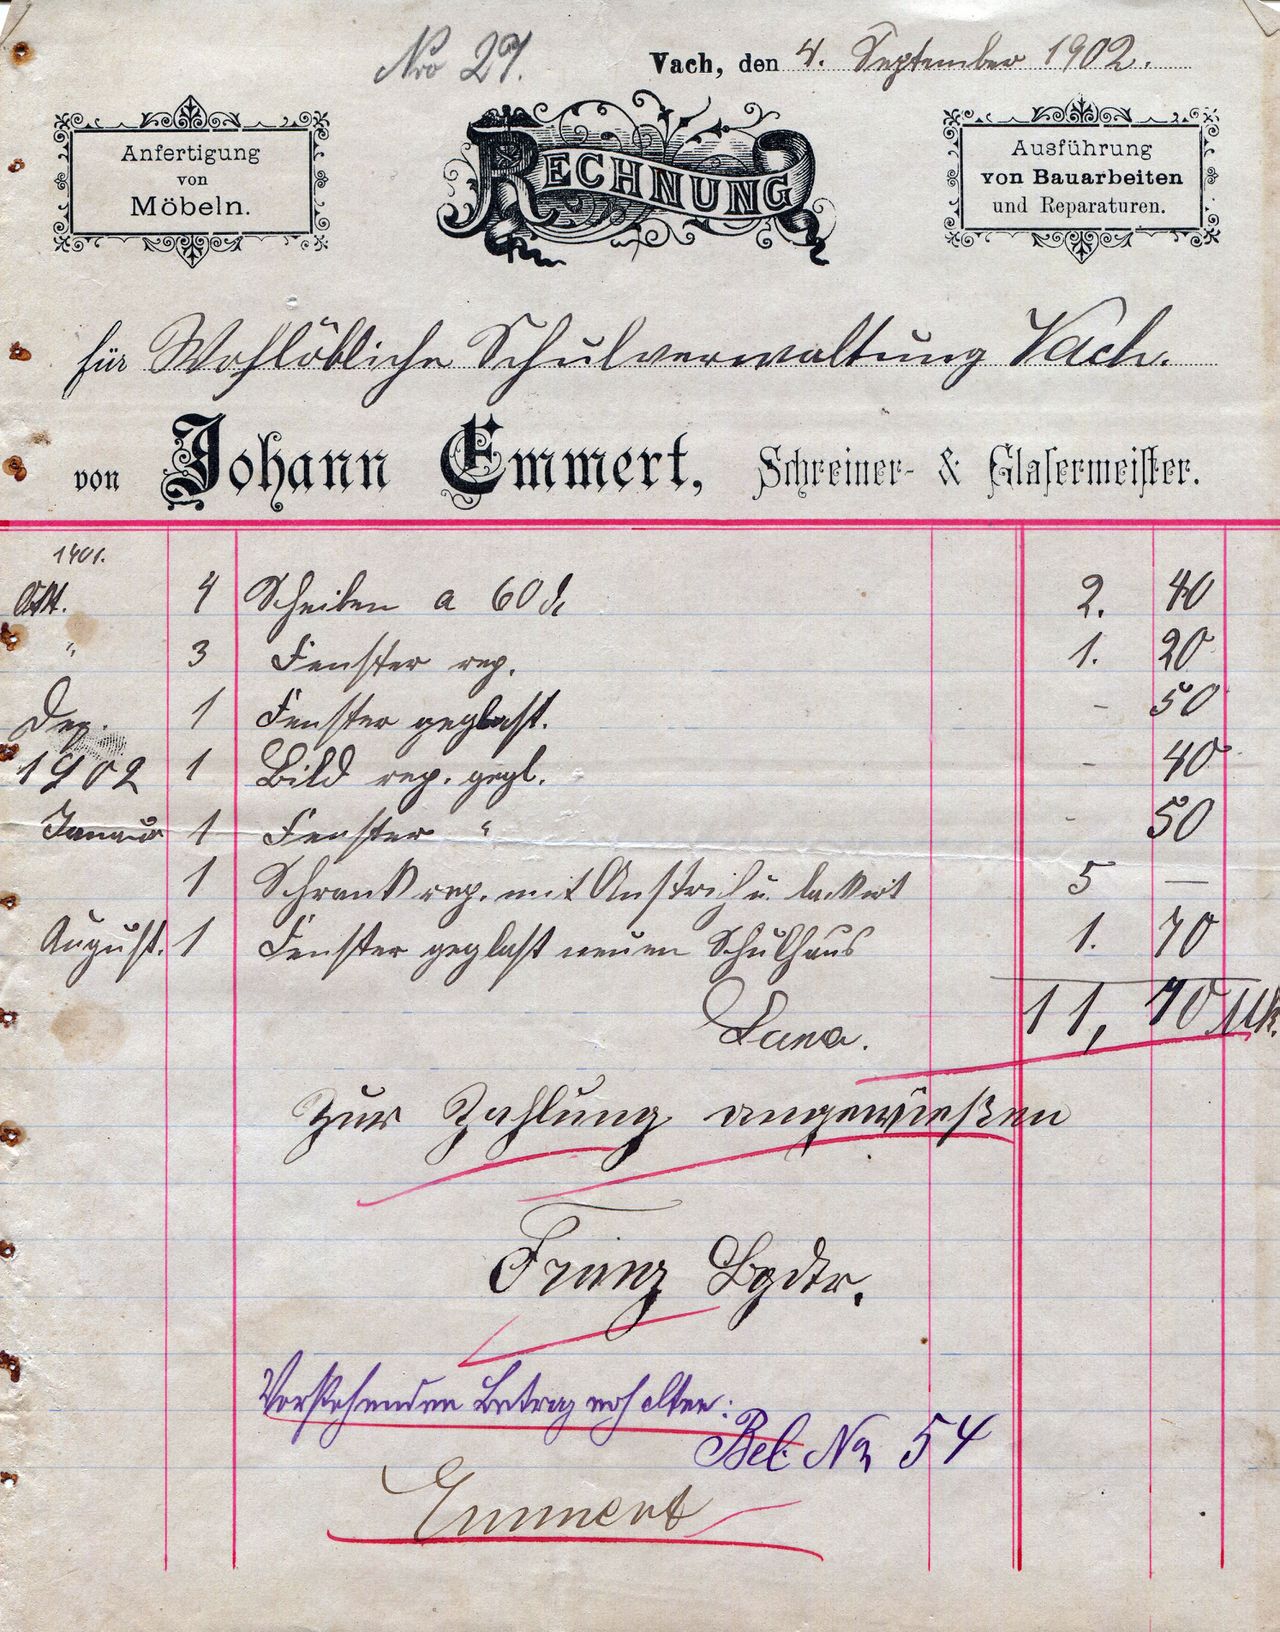 Nro 27.
Vach, den 4. September 1902.
Anfertigung
von
Möbeln.
RECHNUNG
Ausführung
von Bauarbeiten
und Reparaturen.
für Wohllöbliche Schulverwaltung Vach.
von Johann Emmert, Schreiner- & Glasermeister.
1901.
Okt. 4 Scheiben a 60 ₰ 2. 40
" 3 Fenster rep. 1. 20
Dez. 1 Fenster geglast. - 50
1902 1 Bild rep. gegl. - 40
Januar 1 Fenster " - 50
1 Schrank rep. mit Anstrich u. lackirt 5 —
August. 1 Fenster geglast neuen Schulhaus 1. 70
11, 70 Mk.
Zur Zahlung angewießen
Bgstr.
Vorstehenden Betrag erhalten:
Bel. No 54
Emmert